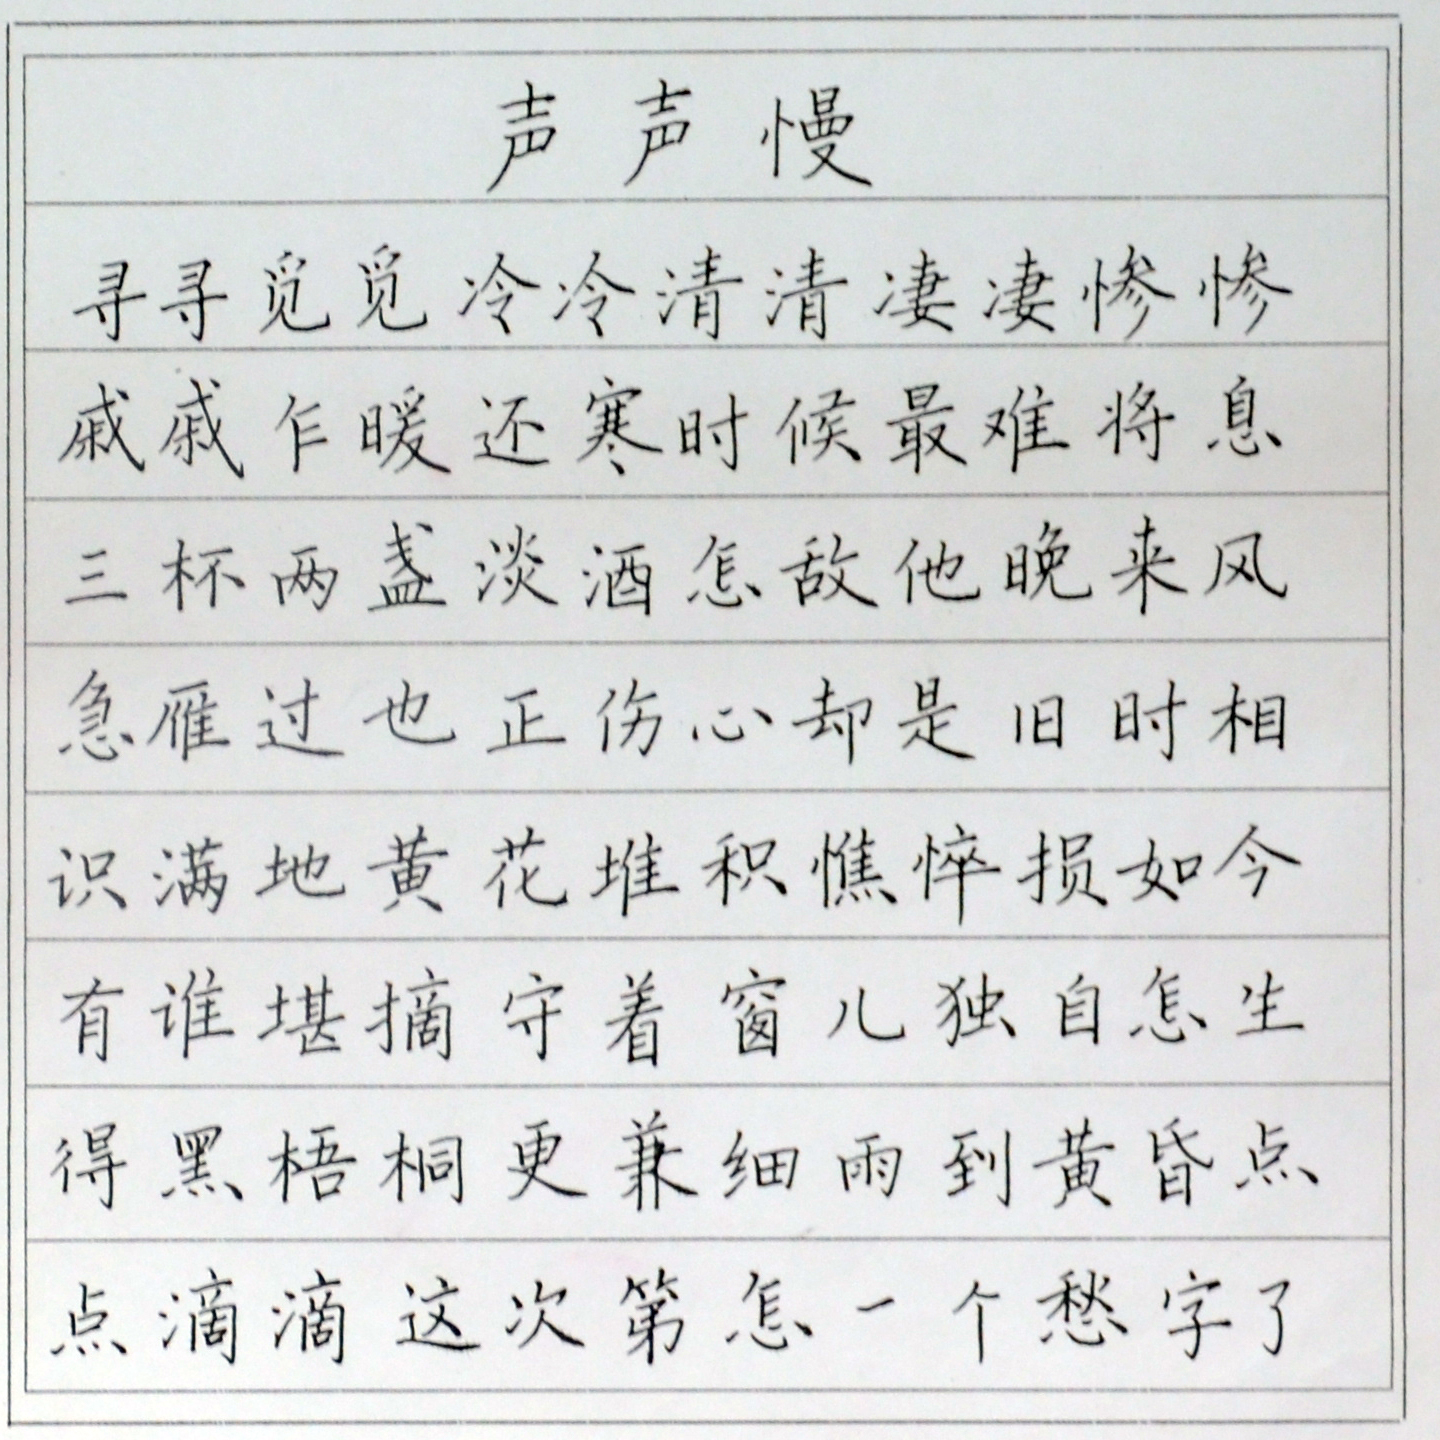 声声慢
寻寻觅觅冷冷清清凄凄惨惨
戚戚乍暖还寒时候最难将息
三杯两盏淡酒怎敌他晚来风
急雁过也正伤心却是旧时相
识满地黄花堆积憔悴损如今
有谁堪摘守着窗儿独自怎生
得黑梧桐更兼细雨到黄昏点
点滴滴这次第怎一个愁字了